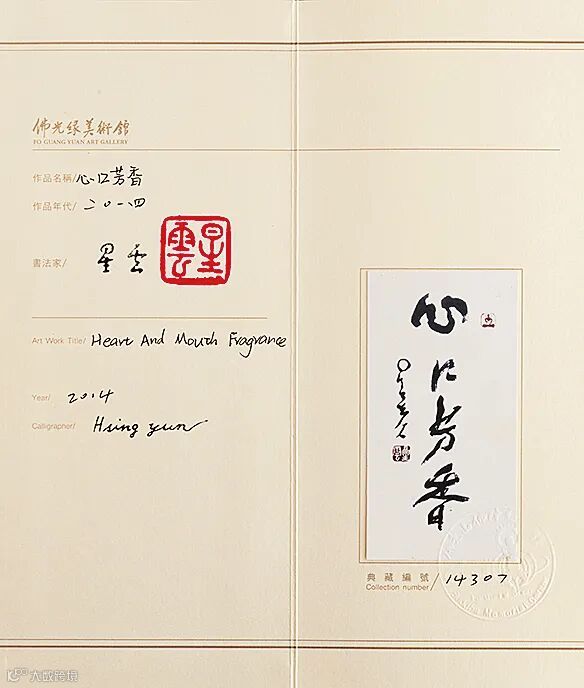 佛光緣美術館
FO GUANG YUAN ART GALLERY
作品名稱/心口芳香
作品年代/二〇一四
書法家/星雲
星雲
Art Work Title/Heart And Mouth Fragrance
Year/2014
Calligrapher/Hsing yun
心口芳香
典藏編號/14307
Collection number/
大眾跨境